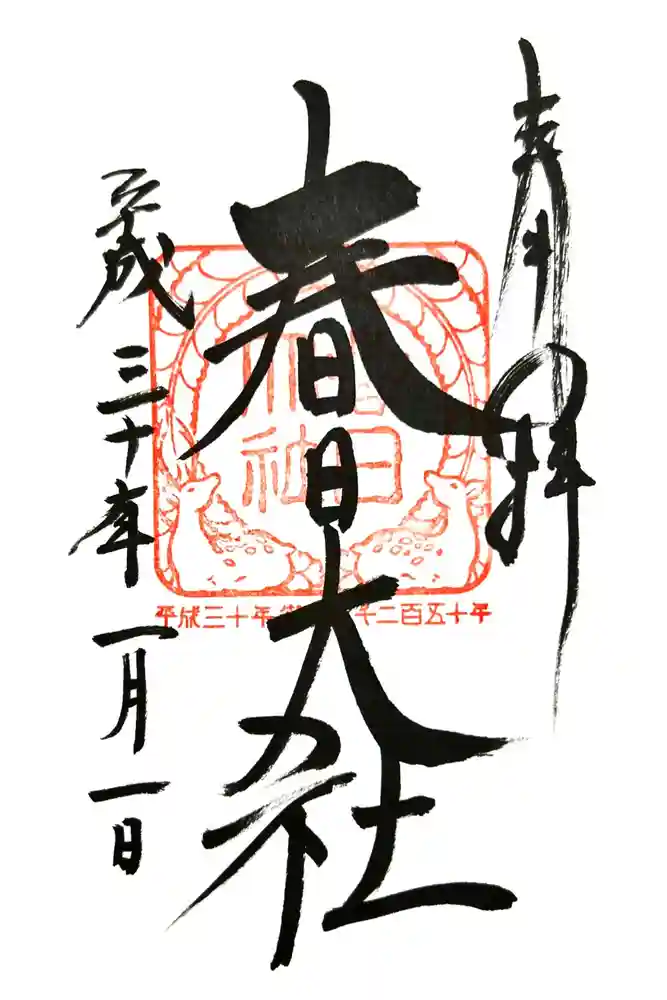 奉拝
春日大社
平成三十年一月一日
春日
神社
平成三十年 御 千二百五十年